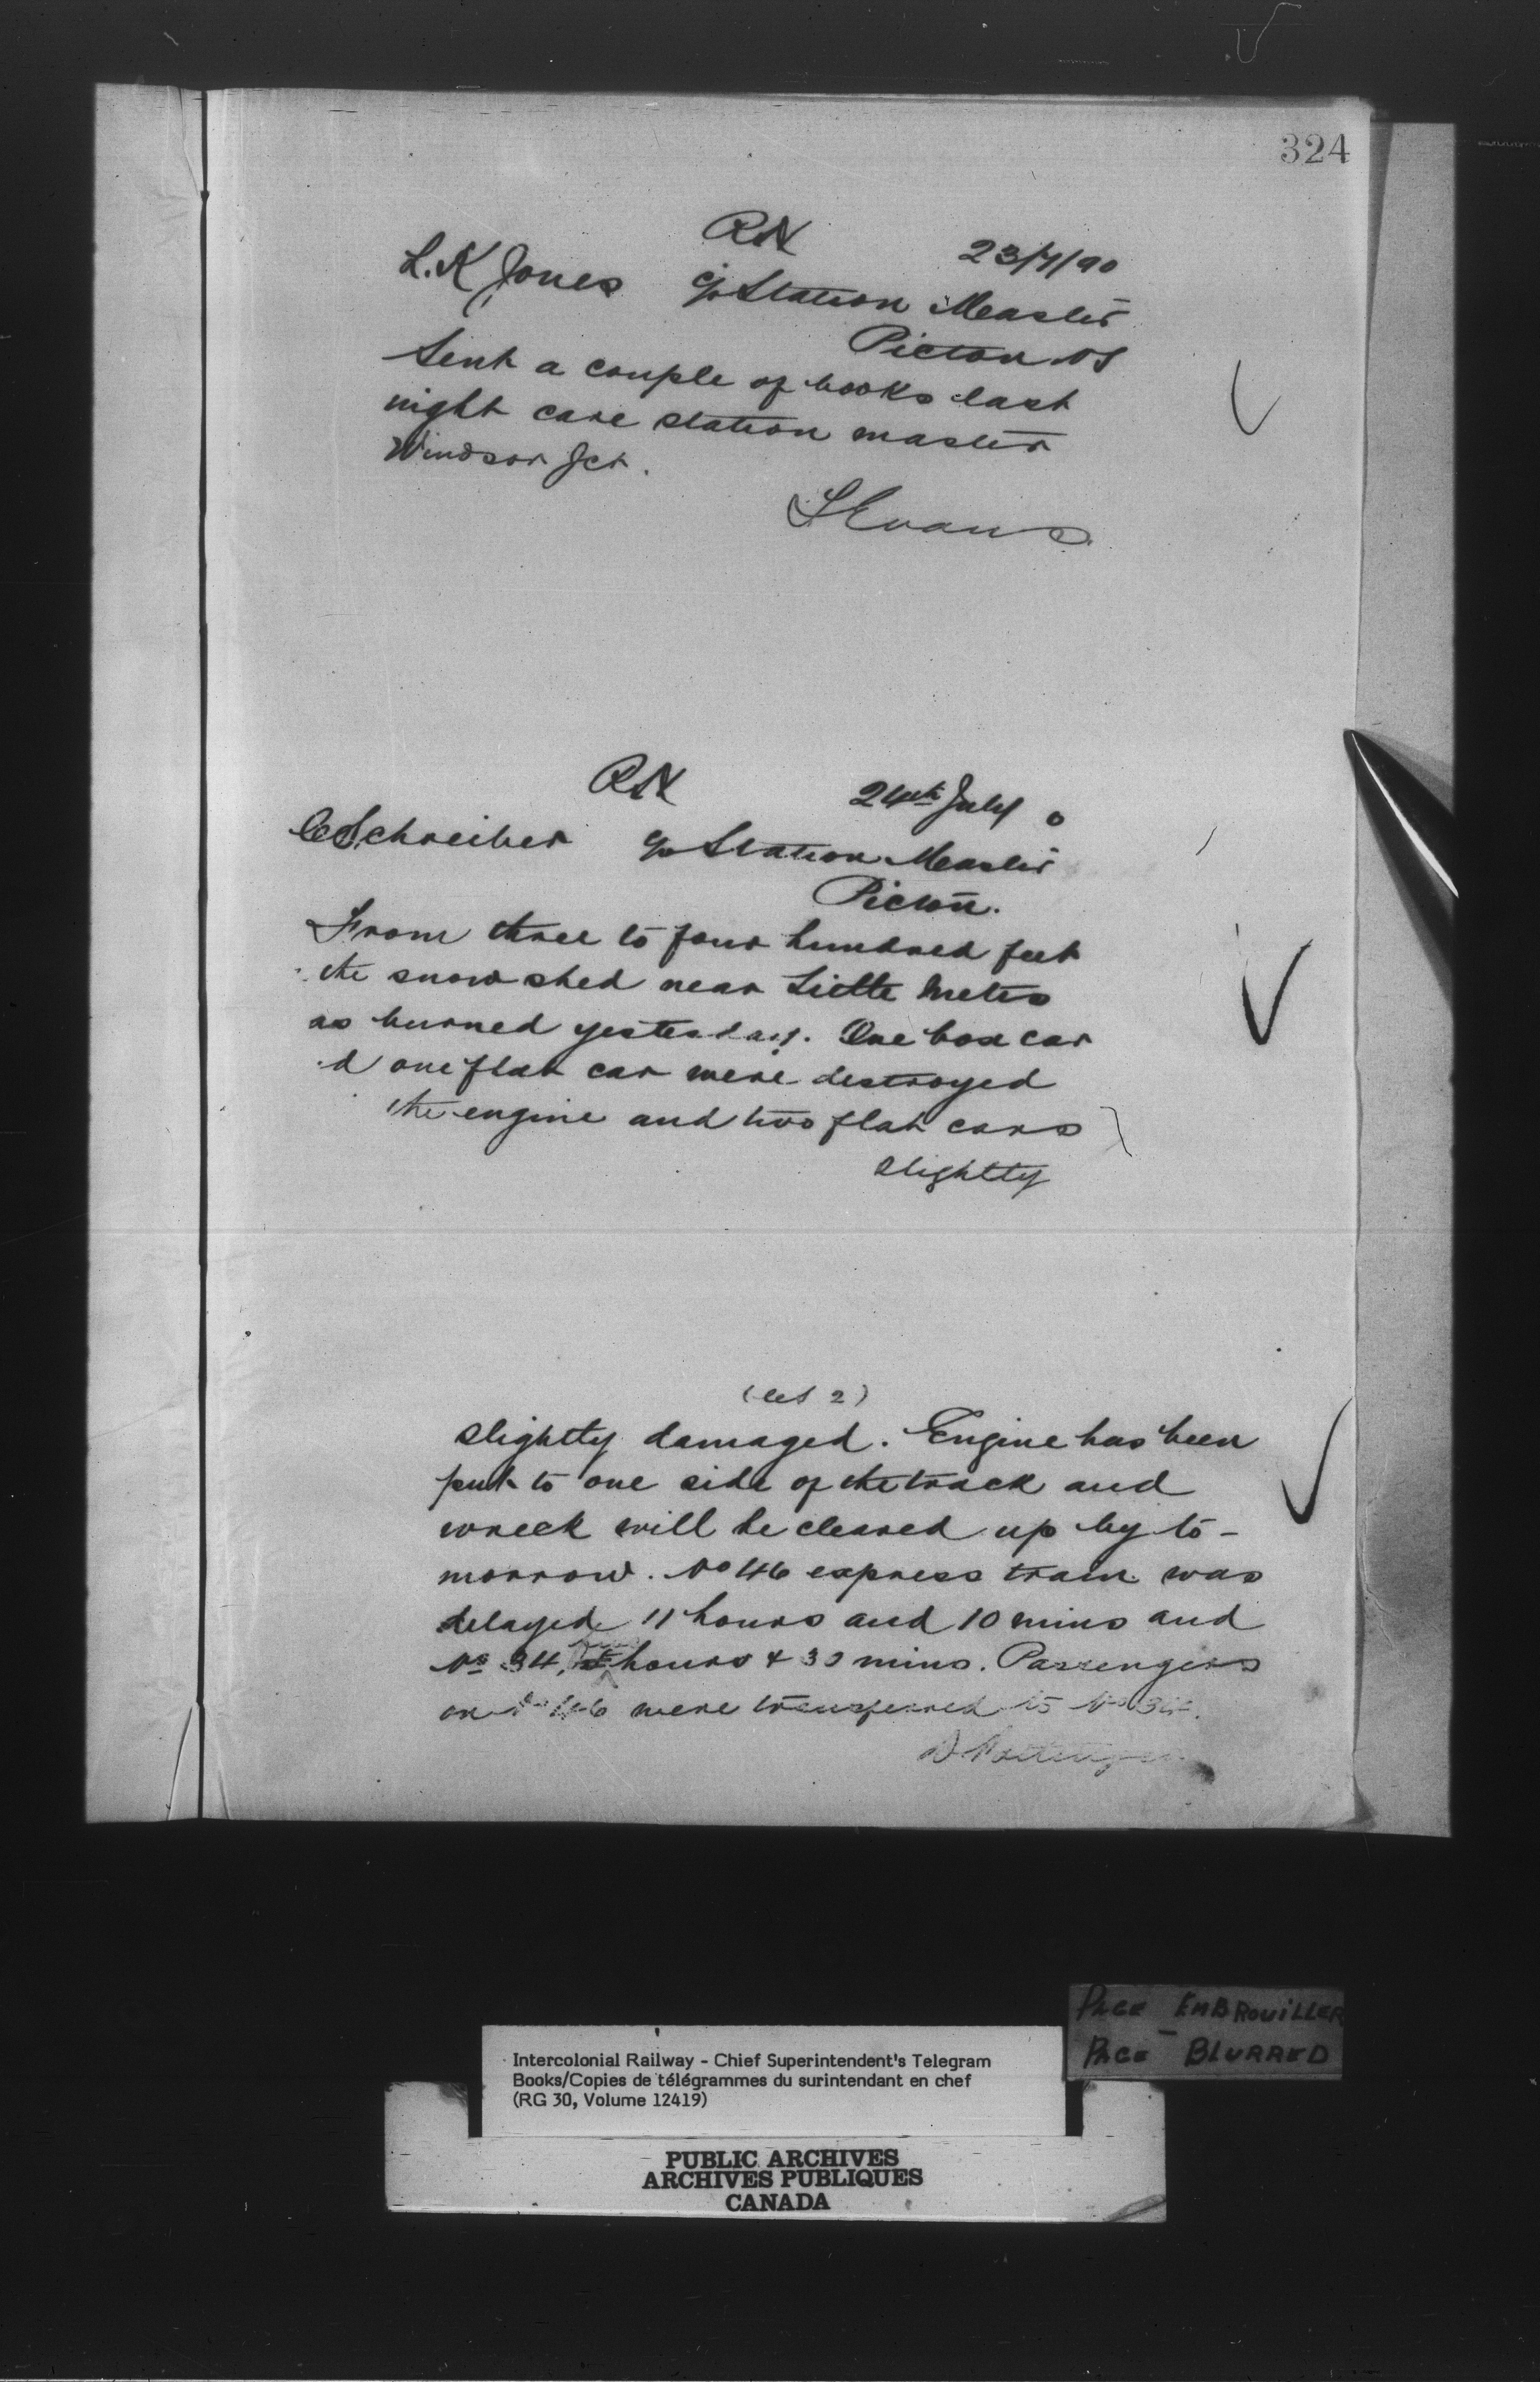 324
RN
23/7/90
L. K Jones c/o Station Master
Picton NS
Sent a couple of books last
night care station master
Windsor Jct.
S Evans
RN
24th July 0
C Schreiber c/o Station Master
Picton.
From three to four hundred feet
the snow shed near Little Metis
as burned yesterday. One box car
d one flat car were destroyed
the engine and two flat cars
slightly
2)
slightly damaged. Engine has been
put to one side of the track and
wreck will be cleared up by to-
morrow. No 46 express train was
delayed 11 hours and 10 mins and
No 34, hours & 30 mins. Passengers
on No 46 were transferred to No 34.
D Pottinger
PAGE EMBROUILLER
PAGE BLURRED
Intercolonial Railway - Chief Superintendent's Telegram
Books/Copies de télégrammes du surintendant en chef
(RG 30, Volume 12419)
PUBLIC ARCHIVES
ARCHIVES PUBLIQUES
CANADA